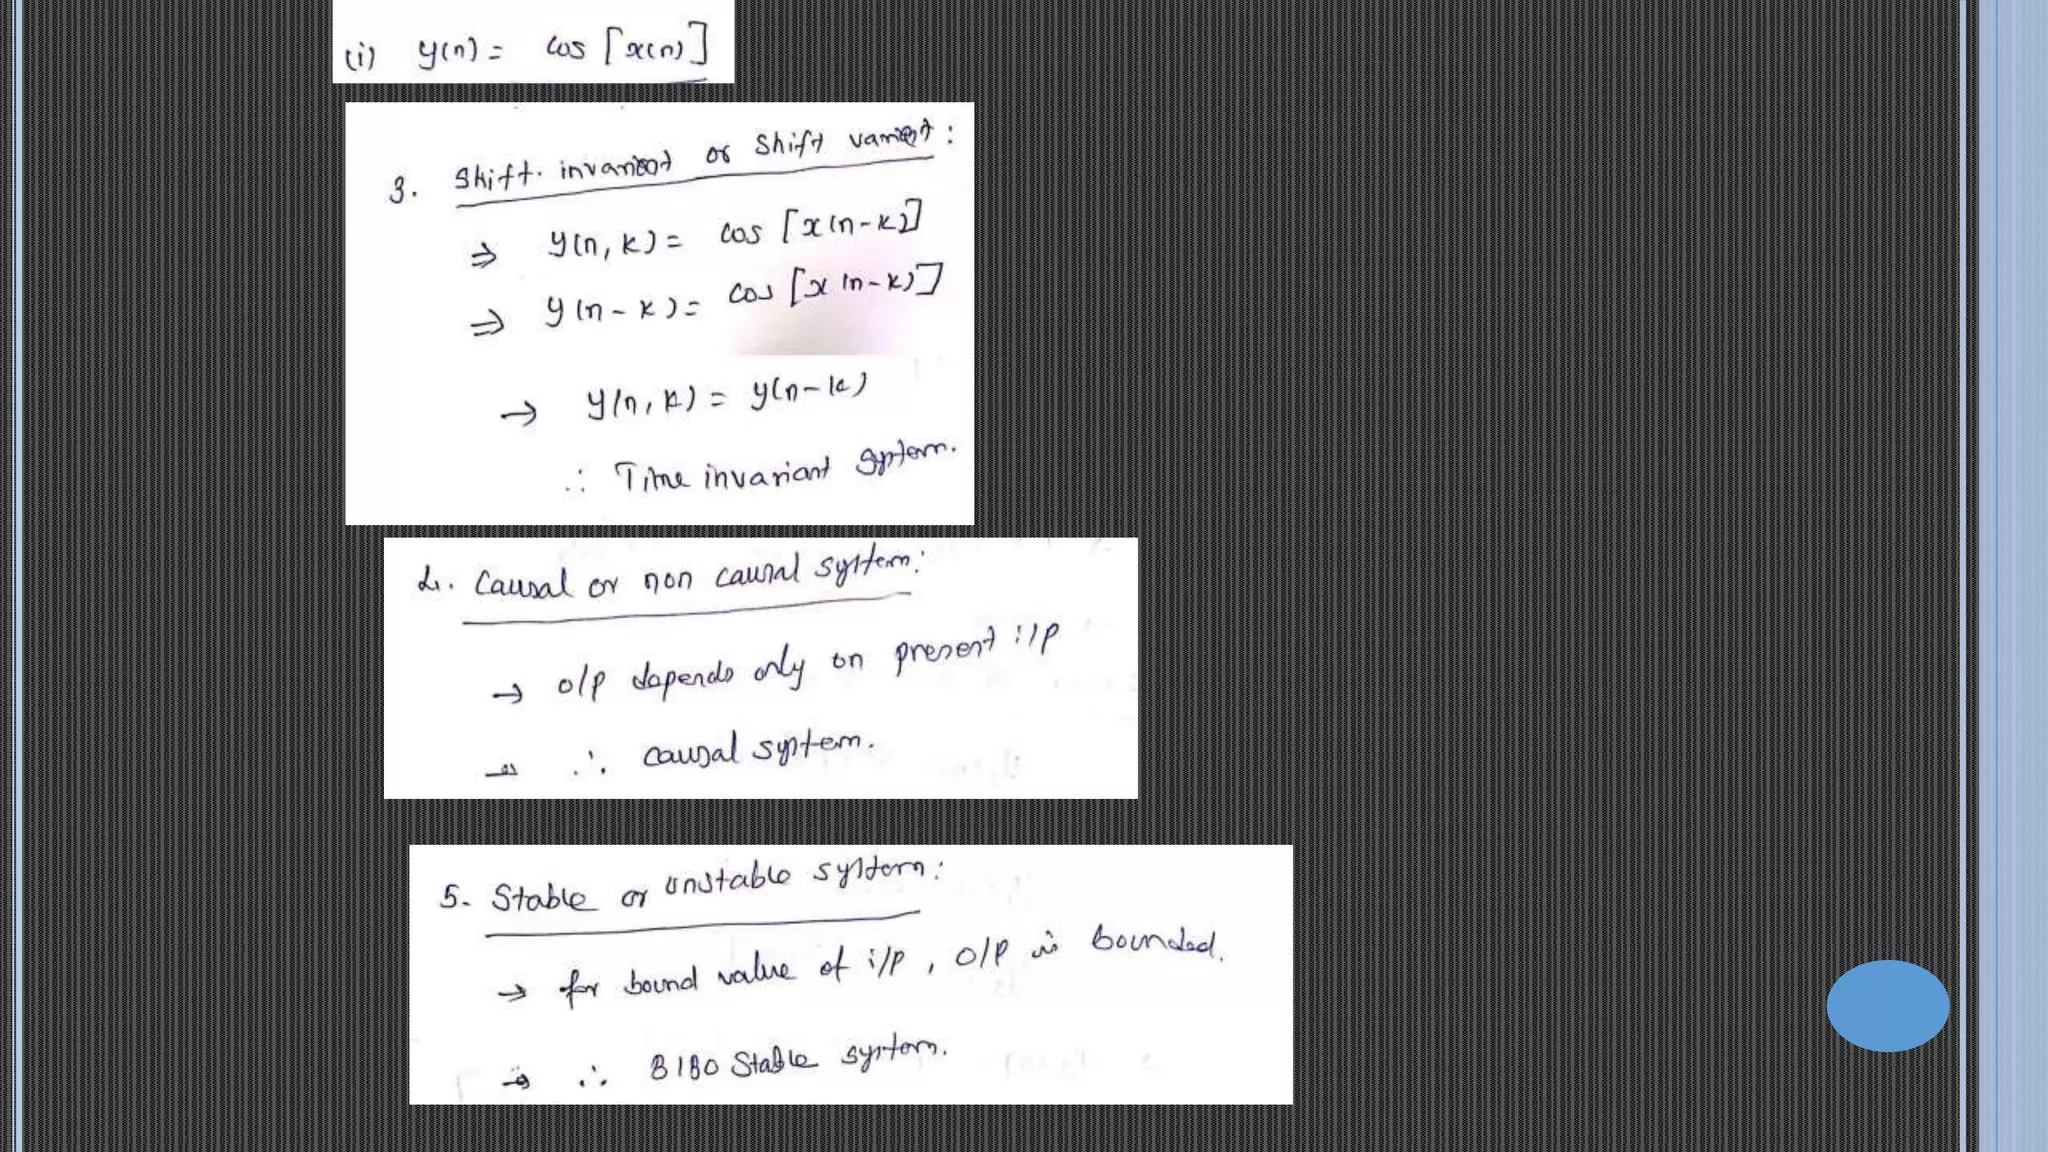 (i) y(n) = cos [x(n)]
3. Shift invariant or Shift variant :
⇒ y(n, k) = cos [x(n-k)]
⇒ y(n-k) = cos [x(n-k)]
→ y(n, k) = y(n-k)
∴ Time invariant system.
4. Causal or non causal system:
→ o/p depends only on present i/p
→ ∴ causal system.
5. Stable or unstable system:
→ for bound value of i/p, o/p is bounded.
→ ∴ BIBO Stable system.